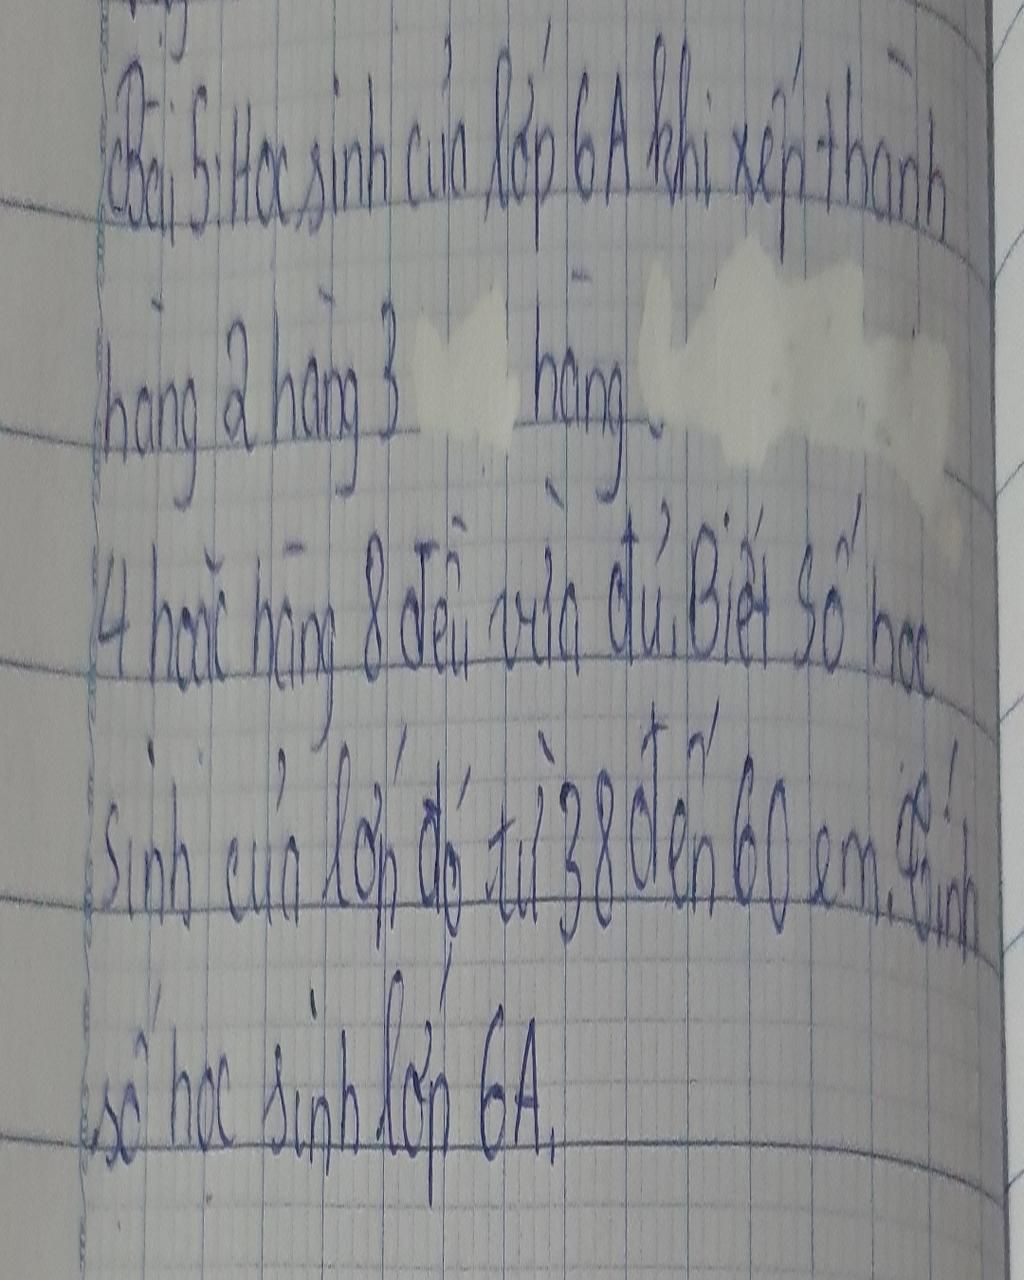 Bài 5: Học sinh của lớp 6A khi xếp thành
hàng 2 hàng 3 hàng
4 hoặc hàng 8 đều vừa đủ. Biết số học
sinh của lớp đó từ 38 đến 60 em. Tính
số học sinh lớp 6A.